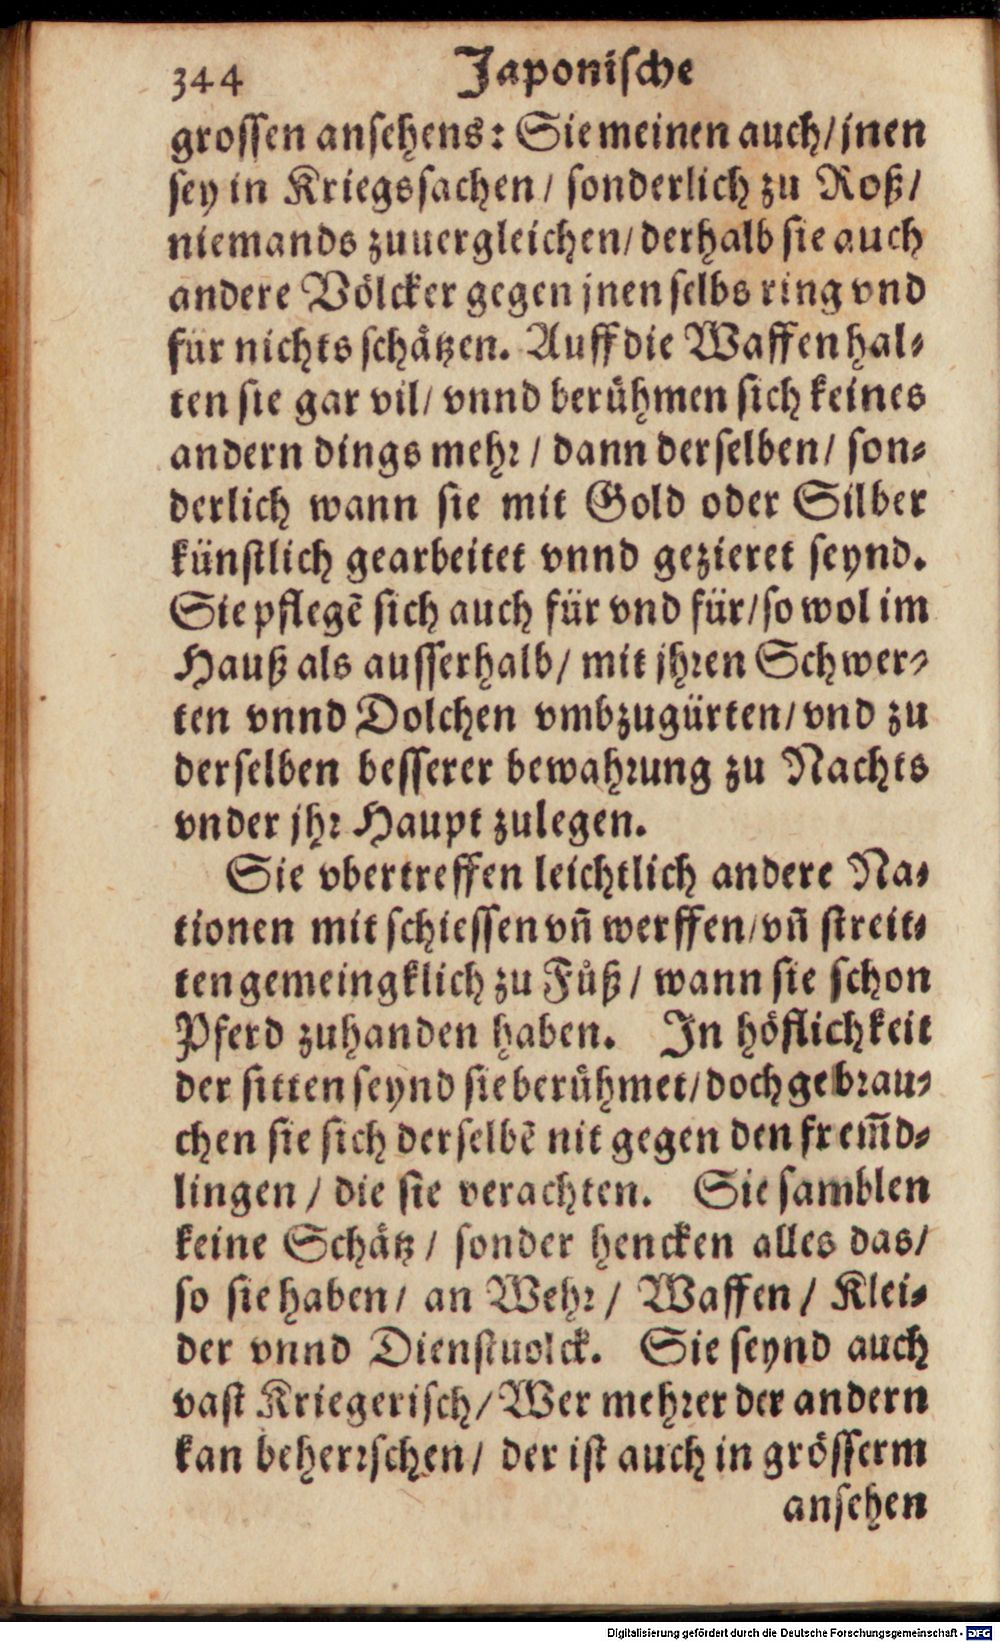 344 Japoniſche
groſſen anſehens: Sie meinen auch/ jnen
ſey in Kriegsſachen/ ſonderlich zu Roß/
niemands zuuergleichen/ derhalb ſie auch
andere Völcker gegen jnen ſelbs ring vnd
für nichts ſchätzen. Auff die Waffen hal-
ten ſie gar vil/ vnnd berühmen ſich keines
andern dings mehr/ dann derſelben/ ſon-
derlich wann ſie mit Gold oder Silber
künſtlich gearbeitet vnnd gezieret ſeynd.
Sie pflegē ſich auch für vnd für/ ſo wol im
Hauß als auſſerhalb/ mit jhren Schwer-
ten vnnd Dolchen vmbzugürten/ vnd zu
derſelben beſſerer bewahrung zu Nachts
vnder jhr Haupt zulegen.
Sie vbertreffen leichtlich andere Na-
tionen mit ſchieſſen vn̄ werffen/ vn̄ ſtreit-
ten gemeingklich zu Fuͤß/ wann ſie ſchon
Pferd zuhanden haben. In höflichkeit
der ſitten ſeynd ſie berühmet/ doch gebrau-
chen ſie ſich derſelbē nit gegen den frem̄d-
lingen/ die ſie verachten. Sie ſamblen
keine Schätz/ ſonder hencken alles das/
ſo ſie haben/ an Wehr/ Waffen/ Klei-
der vnnd Dienſtuolck. Sie ſeynd auch
vaſt Kriegeriſch/ Wer mehrer der andern
kan beherrſchen/ der iſt auch in gröſſerm
anſehen
Digitalisierung gefördert durch die Deutsche Forschungsgemeinschaft - DFG